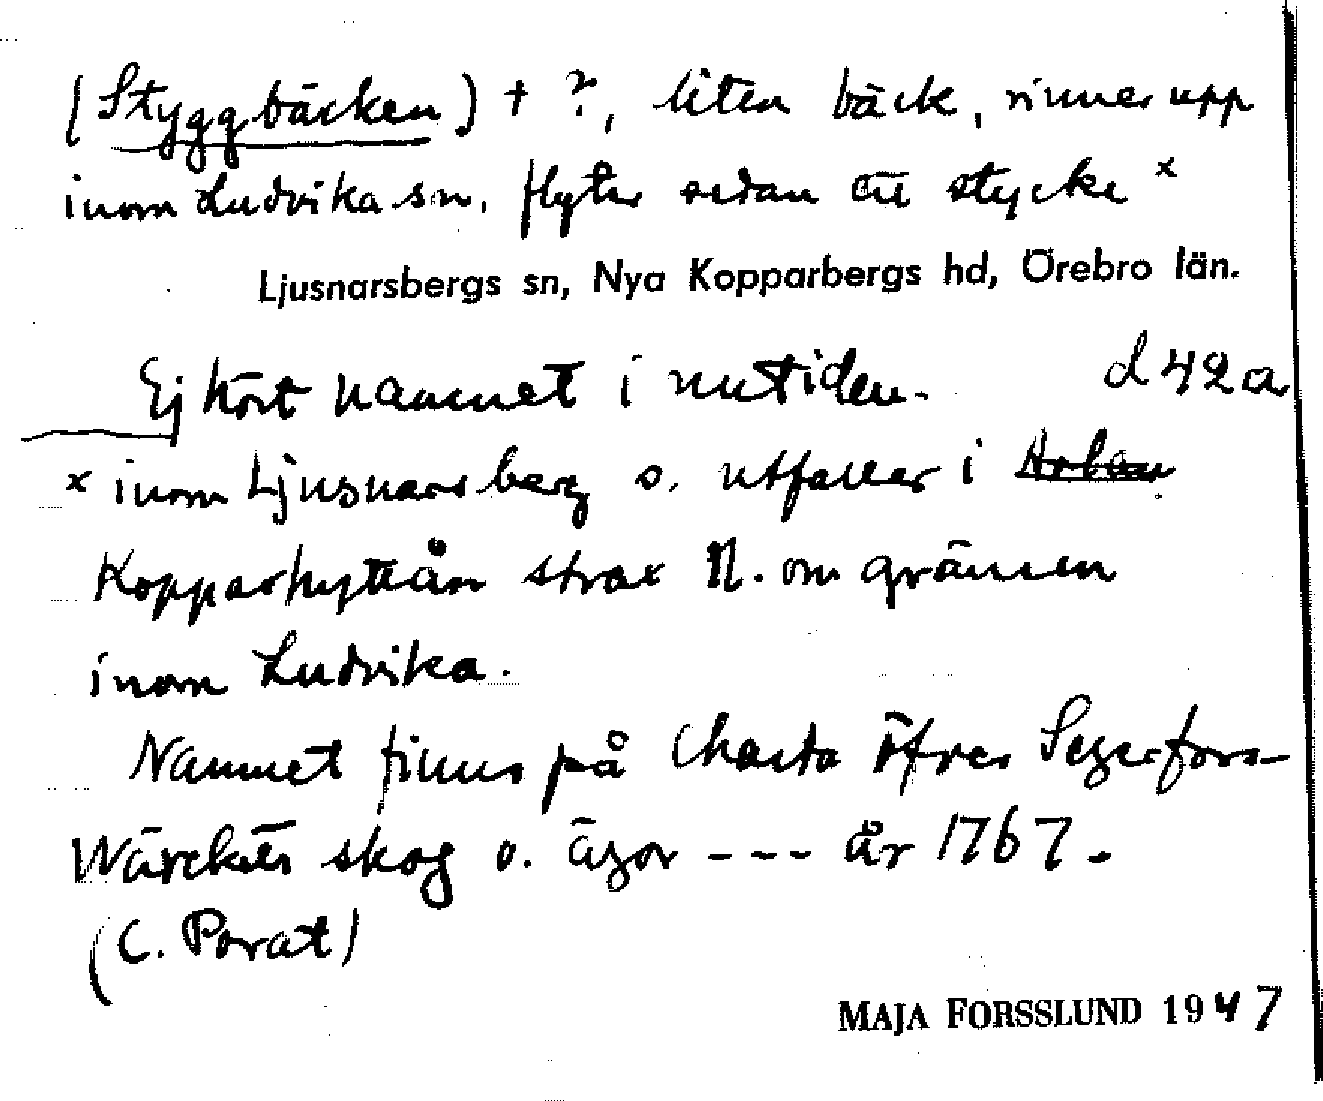 (Styggbäcken) + ?, liten bäck, rinner upp
inom Ludvika sn, flyter sedan ett stycke x
Ljusnarsbergs sn, Nya Kopparbergs hd, Örebro län.
Ej hört namnet i nutiden. d 42 a
x inom Ljusnarsberg o. utfaller i
Kopparhyttån strax N. om gränsen
inom Ludvika.
Namnet finns på Charta öfver Segerfors-
Wärckets skog o. ägor - - - år 1767.
(C. Porat)
MAJA FORSSLUND 1947